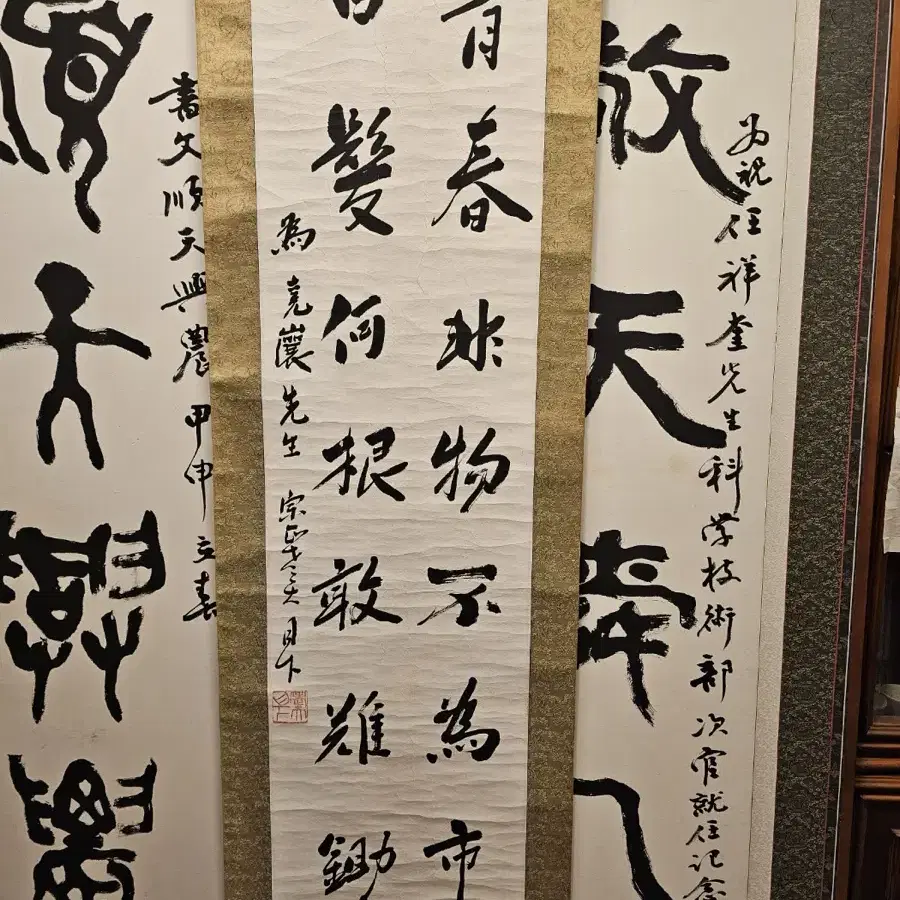 为祝任祥奎先生科学技術部次官就任記念
天
青春非物不為市
白髮何根敢難鋤
為 堯巖先生
書文順天興農甲申立春
順天興農